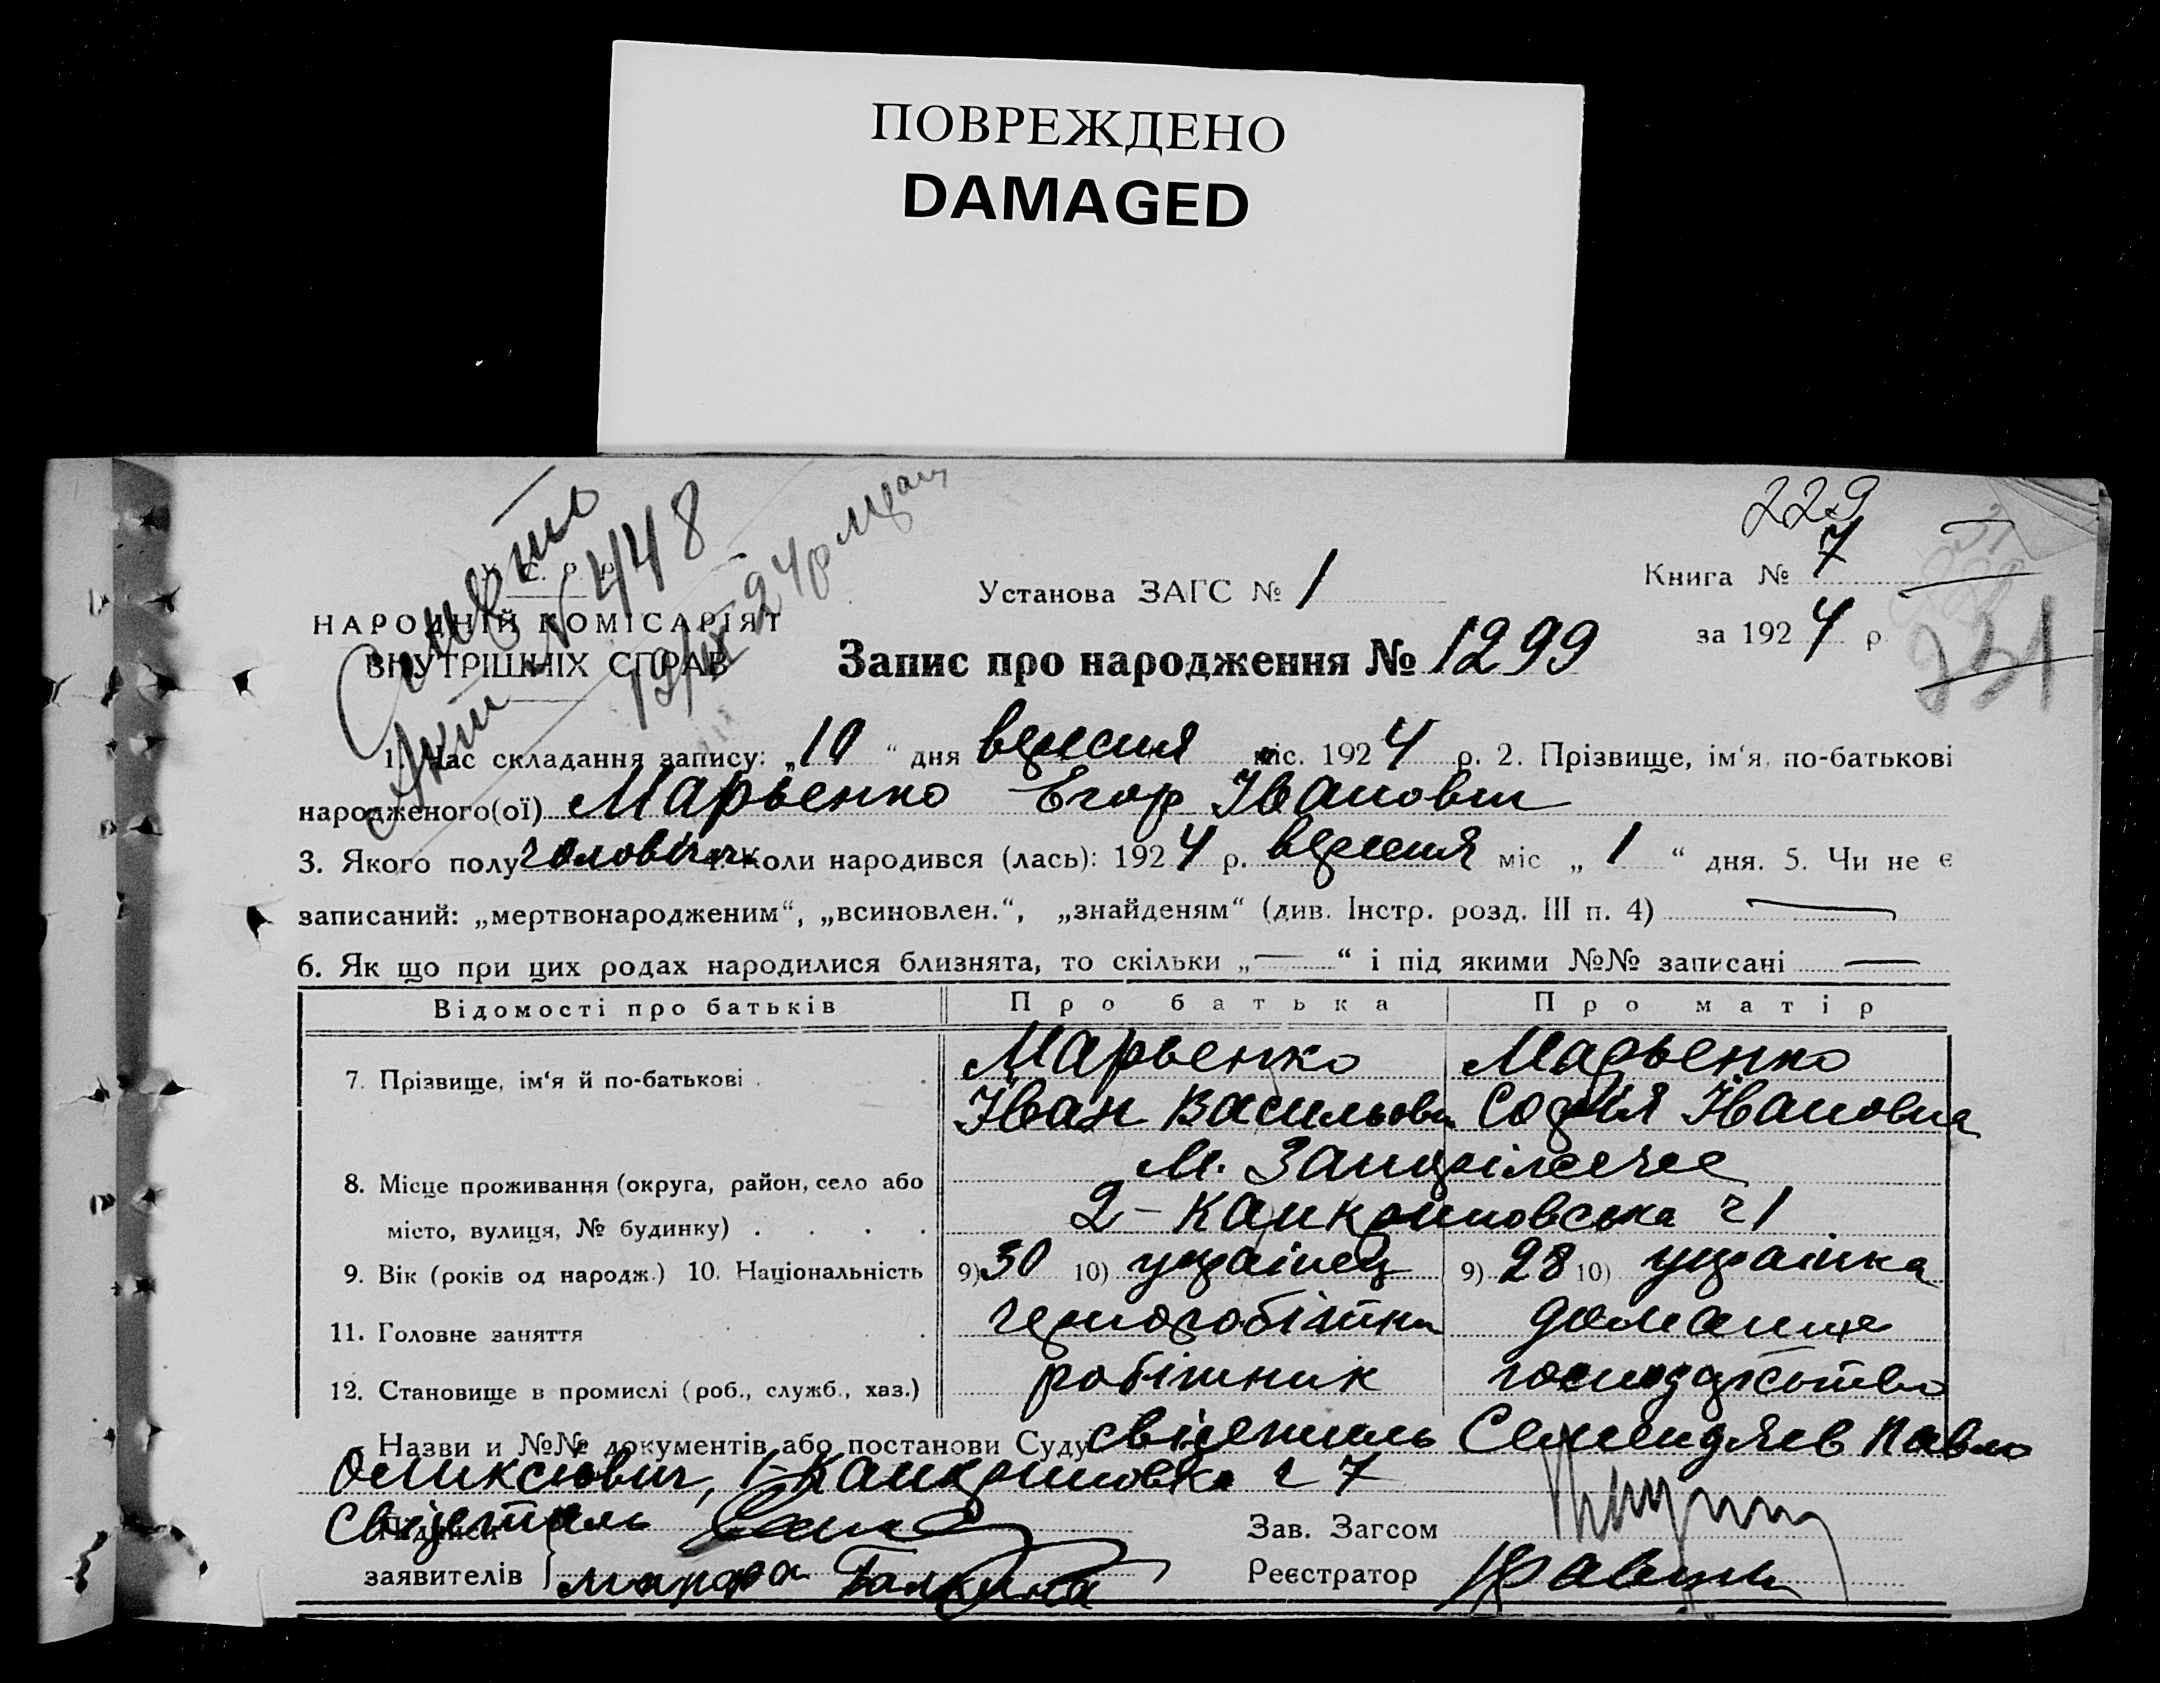 ПОВРЕЖДЕНО
DAMAGED
229
Смерть
Акт № 448
19/IX 24 р
У. С. Р. Р.
НАРОДНІЙ КОМІСАРІЯТ
ВНУТРІШНІХ СПРАВ
Установа ЗАГС № 1
Книга № 7
за 1924 р.
231
Запис про народження № 1299
1. Час складання запису: „10“ дня вересня міс. 1924 р. 2. Прізвище, ім‘я, по-батькові
народженого(ої) Марьенко Егор Іванович
3. Якого полу чоловіч. 4. Коли народився (лась): 1924 р. вересня міс „1“ дня. 5. Чи не є
записаний: „мертвонародженим“, „всиновлен.“, „знайденям“ (див. Інстр. розд. III п. 4) —
6. Як що при цих родах народилися близнята, то скільки „—“ і під якими №№ записані —
Відомості про батьків Про батька Про матір
7. Прізвище, ім‘я й по-батькові . . Марьенко Марьенко
Іван Васильович Софія Івановна
8. Місце проживання (округа, район, село або м.
місто, вулиця, № будинку) . . . . 2-
9. Вік (років од народж.) 10. Національність 9) 30 10) українец 9) 28 10) українка
11. Головне заняття чернороботник домашнє
12. Становище в промислі (роб., служб., хаз.) робітник господарство
Назви и №№ документів або постанови Суду свідетиль Павло
ч 7
Свідетиль
Підписи
заявителів
Зав. Загсом
Реєстратор